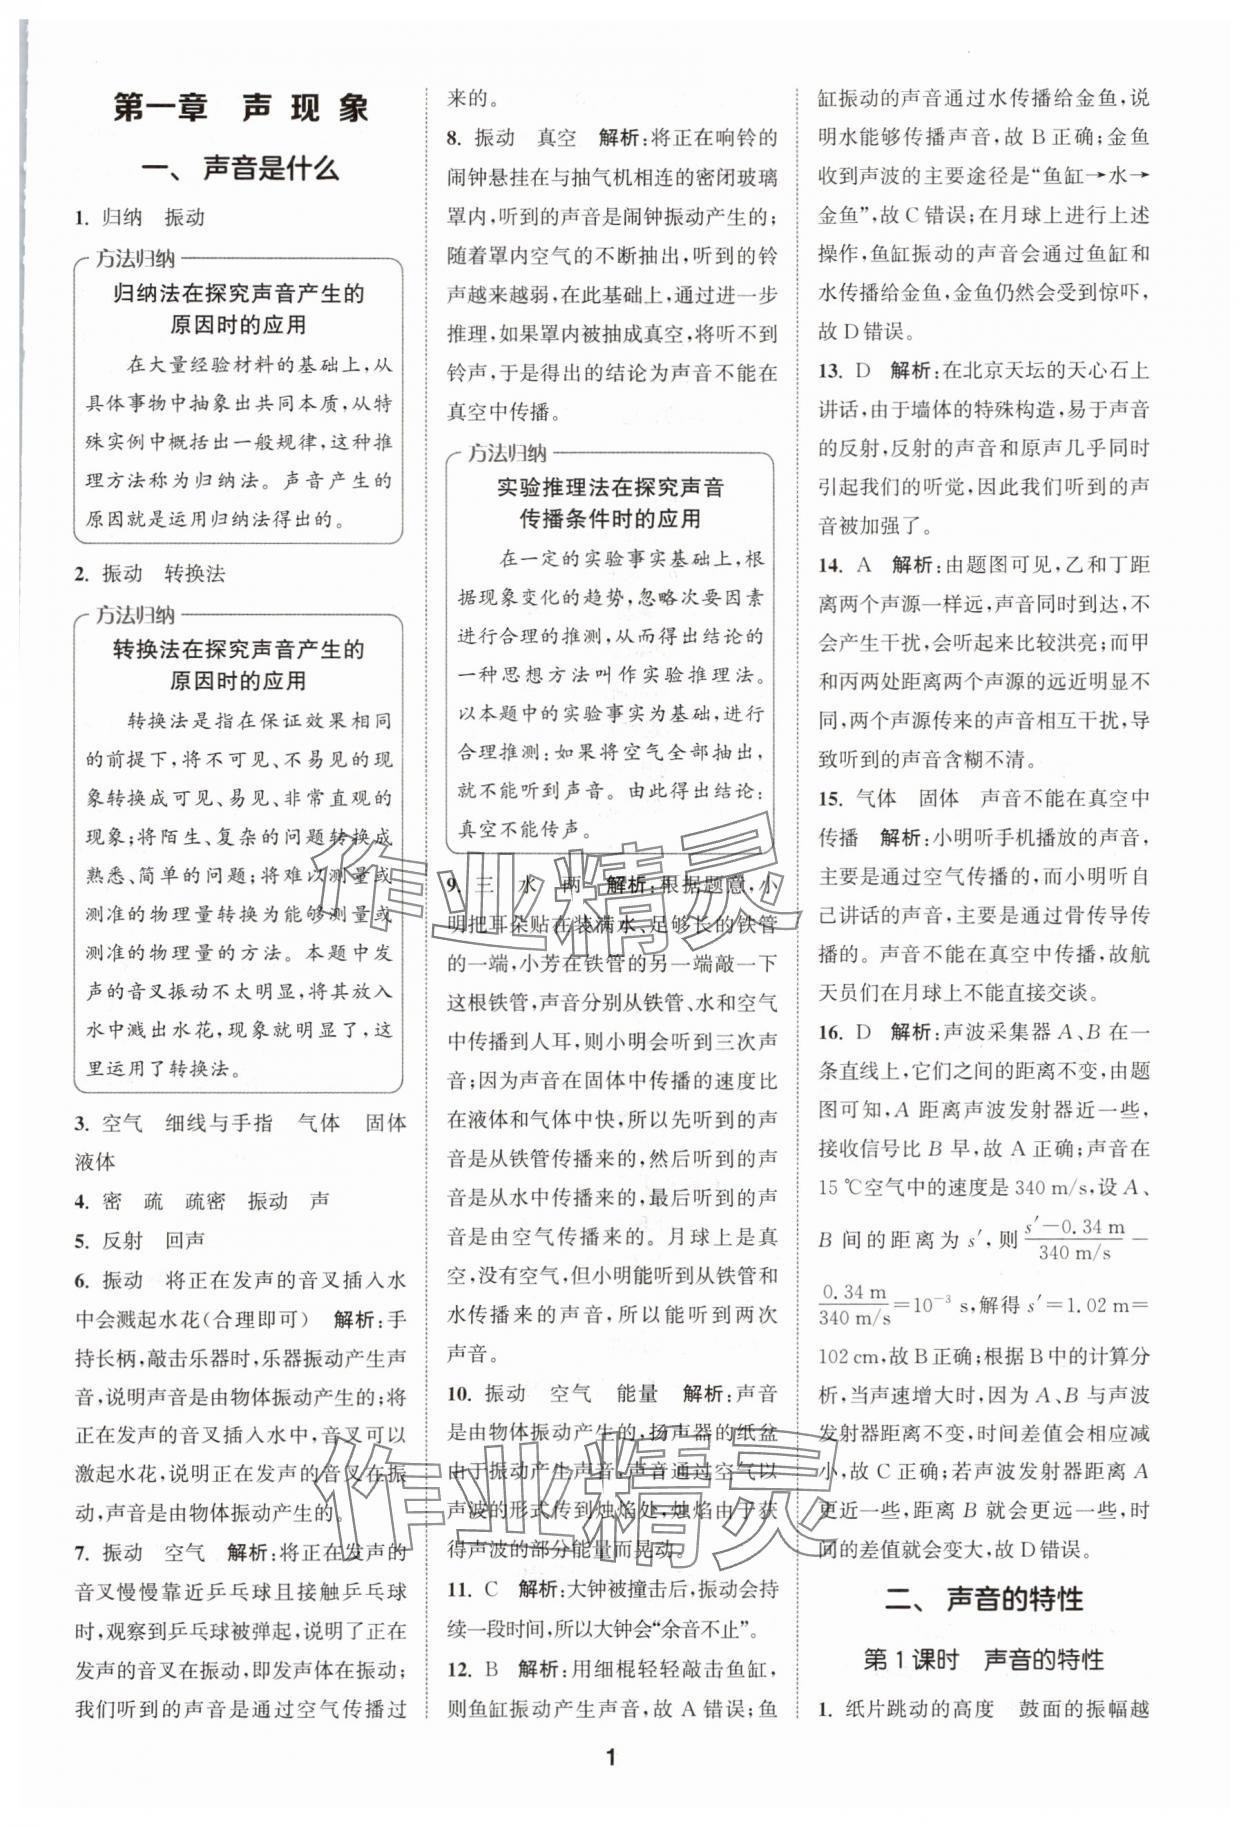 第一章 声现象
一、声音是什么
1. 归纳 振动
方法归纳
归纳法在探究声音产生的
原因时的应用
在大量经验材料的基础上,从
具体事物中抽象出共同本质,从特
殊实例中概括出一般规律,这种推
理方法称为归纳法。声音产生的
原因就是运用归纳法得出的。
2. 振动 转换法
方法归纳
转换法在探究声音产生的
原因时的应用
转换法是指在保证效果相同
的前提下,将不可见、不易见的现
象转换成可见、易见、非常直观的
现象;将陌生、复杂的问题转换成
熟悉、简单的问题;将难以测量或
测准的物理量转换为能够测量或
测准的物理量的方法。本题中发
声的音叉振动不太明显,将其放入
水中溅出水花,现象就明显了,这
里运用了转换法。
3. 空气 细线与手指 气体 固体
液体
4. 密 疏 疏密 振动 声
5. 反射 回声
6. 振动 将正在发声的音叉插入水
中会溅起水花(合理即可) 解析:手
持长柄,敲击乐器时,乐器振动产生声
音,说明声音是由物体振动产生的;将
正在发声的音叉插入水中,音叉可以
激起水花,说明正在发声的音叉在振
动,声音是由物体振动产生的。
7. 振动 空气 解析:将正在发声的
音叉慢慢靠近乒乓球且接触乒乓球
时,观察到乒乓球被弹起,说明了正在
发声的音叉在振动,即发声体在振动;
我们听到的声音是通过空气传播过
来的。
8. 振动 真空 解析:将正在响铃的
闹钟悬挂在与抽气机相连的密闭玻璃
罩内,听到的声音是闹钟振动产生的;
随着罩内空气的不断抽出,听到的铃
声越来越弱,在此基础上,通过进一步
推理,如果罩内被抽成真空,将听不到
铃声,于是得出的结论为声音不能在
真空中传播。
方法归纳
实验推理法在探究声音
传播条件时的应用
在一定的实验事实基础上,根
据现象变化的趋势,忽略次要因素
进行合理的推测,从而得出结论的
一种思想方法叫作实验推理法。
以本题中的实验事实为基础,进行
合理推测:如果将空气全部抽出,
就不能听到声音。由此得出结论:
真空不能传声。
9. 三 水 两 解析:根据题意,小
明把耳朵贴在装满水、足够长的铁管
的一端,小芳在铁管的另一端敲一下
这根铁管,声音分别从铁管、水和空气
中传播到人耳,则小明会听到三次声
音;因为声音在固体中传播的速度比
在液体和气体中快,所以先听到的声
音是从铁管传播来的,然后听到的声
音是从水中传播来的,最后听到的声
音是由空气传播来的。月球上是真
空,没有空气,但小明能听到从铁管和
水传播来的声音,所以能听到两次
声音。
10. 振动 空气 能量 解析:声音
是由物体振动产生的,扬声器的纸盆
由于振动产生声音,声音通过空气以
声波的形式传到烛焰处,烛焰由于获
得声波的部分能量而晃动。
11. C 解析:大钟被撞击后,振动会持
续一段时间,所以大钟会“余音不止”。
12. B 解析:用细棍轻轻敲击鱼缸,
则鱼缸振动产生声音,故 A 错误;鱼
缸振动的声音通过水传播给金鱼,说
明水能够传播声音,故 B 正确;金鱼
收到声波的主要途径是“鱼缸→水→
金鱼”,故 C 错误;在月球上进行上述
操作,鱼缸振动的声音会通过鱼缸和
水传播给金鱼,金鱼仍然会受到惊吓,
故 D 错误。
13. D 解析:在北京天坛的天心石上
讲话,由于墙体的特殊构造,易于声音
的反射,反射的声音和原声几乎同时
引起我们的听觉,因此我们听到的声
音被加强了。
14. A 解析:由题图可见,乙和丁距
离两个声源一样远,声音同时到达,不
会产生干扰,会听起来比较洪亮;而甲
和丙两处距离两个声源的远近明显不
同,两个声源传来的声音相互干扰,导
致听到的声音含糊不清。
15. 气体 固体 声音不能在真空中
传播 解析:小明听手机播放的声音,
主要是通过空气传播的,而小明听自
己讲话的声音,主要是通过骨传导传
播的。声音不能在真空中传播,故航
天员们在月球上不能直接交谈。
16. D 解析:声波采集器 A、B 在一
条直线上,它们之间的距离不变,由题
图可知,A 距离声波发射器近一些,
接收信号比 B 早,故 A 正确;声音在
15 ℃空气中的速度是 340 m/s,设 A、
B 间的距离为 s′,则 (s′−0.34 m)/(340 m/s) −
(0.34 m)/(340 m/s) =10⁻³ s,解得 s′=1.02 m=
102 cm,故 B 正确;根据 B 中的计算分
析,当声速增大时,因为 A、B 与声波
发射器的距离不变,时间差值会相应减
小,故 C 正确;若声波发射器距离 A
更近一些,距离 B 就会更远一些,时
间的差值就会变大,故 D 错误。
二、声音的特性
第 1 课时 声音的特性
1. 纸片跳动的高度 鼓面的振幅越
1
作业精灵
作业精灵